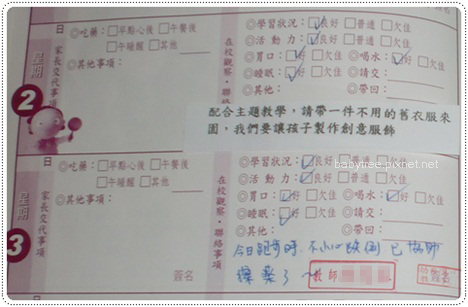 日 ◎吃藥：□早點心後 □午餐後
□午睡醒 □其他
◎其他事項：
家長交代事項
星期
2
在校觀察・聯絡事項
◎學習狀況：☑良好 □普通 □欠佳
◎活動力：☑良好 □普通 □欠佳
◎胃口：☑好 □欠佳 ◎喝水：☑好 □欠佳
◎睡眠：☑好 □欠佳 □請交
◎其他： ◎帶回：
配合主題教學，請帶一件不用的舊衣服來
園，我們要讓孩子製作創意服飾
日 ◎吃藥：□早點心後 □午餐後
□午睡醒 □其他
◎其他事項：
家長交代事項
星期
3
簽名
在校觀察・聯絡事項
◎學習狀況：☑良好 □普通 □欠佳
babytree.pixnet.net
◎活動力：☑良好 □普通 □欠佳
◎胃口：☑好 □欠佳 ◎喝水：☑好 □欠佳
◎睡眠：☑好 □欠佳 □請交
◎其他： ◎帶回：
今日跑步時，不小心跌倒，已協助
擦藥了~
教師
簽名